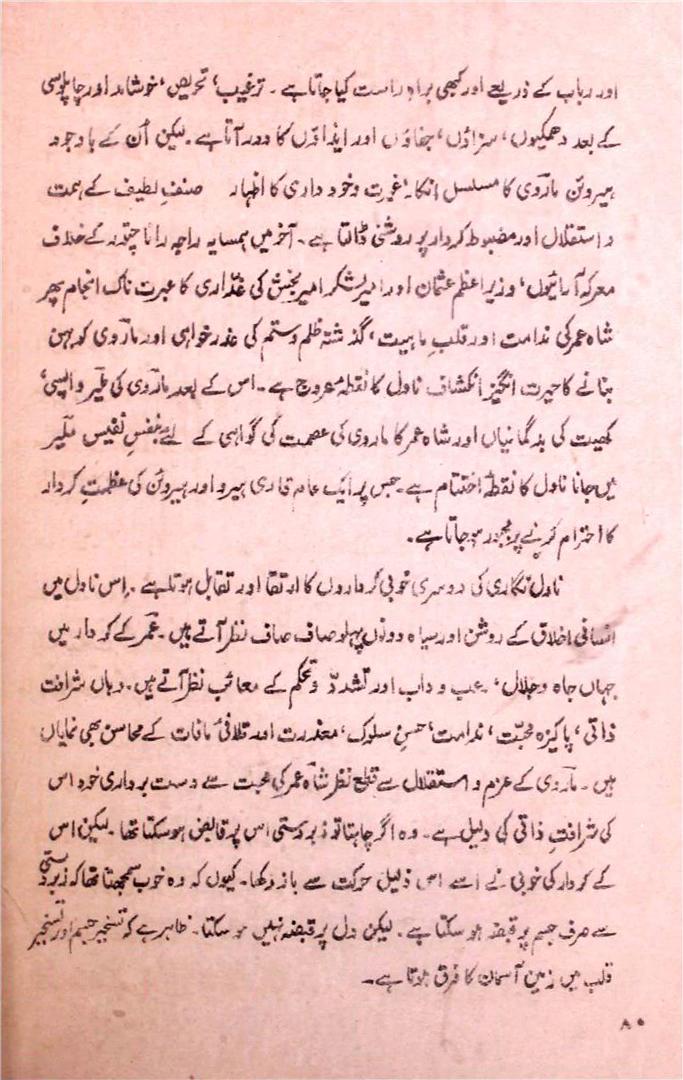 اور رباب کے ذریعے اور کبھی براہِ راست کیا جاتا ہے ۔ ترغیب، تحریص، خوشامد اور چاپلوسی
کے بعد دھمکیوں، سزاؤں، جفاؤں اور ایذاؤں کا دور آتا ہے ۔ لیکن اُن کے باوجود
ہیروئن مارؔوی کا مسلسل انکار، غیرت و خود داری کا اظہار صنفِ لطیف کے ہمت
و استقلال اور مضبوط کردار پر روشنی ڈالتا ہے ۔ آخر میں ہمسایہ راجہ رانا کے خلاف
معرکہ آرائیوں، وزیر اعظم عثمان اور امیر لشکر امیر بخش کی غدّاری کا عبرت ناک انجام پھر
شاہ عمر کی ندامت اور قلبِ ماہیت، گذشتہ ظلم و ستم کی عذر خواہی اور مارؔوی کو بہن
بنانے کا حیرت انگیز انکشاف ناول کا نقطۂ عروج ہے ۔ اس کے بعد مارؔوی کی ملیر واپسی،
کھیت کی بدگمانیاں اور شاہ عمر کا ماروی کی عصمت کی گواہی کے لئے بنفسِ نفیس ملیر
میں جانا ناول کا نقطۂ اختتام ہے ۔ جس پر ایک عام قاری ہیرو اور ہیروئن کی عظمتِ کردار
کا احترام کرنے پر مجبور ہو جاتا ہے ۔
ناول نگاری کی دوسری خوبی کرداروں کا ارتقا اور تقابل ہوتا ہے ۔ اِس ناول میں
انسانی اخلاق کے روشن اور سیاہ دونوں پہلو صاف صاف نظر آتے ہیں ۔ عمؔر کے کردار میں
جہاں جاہ و جلال، رعب و داب اور تشدّد و تحکم کے معائب نظر آتے ہیں ۔ وہاں شرافت
ذاتی، پاکیزہ محبّت، ندامت، حسنِ سلوک، معذرت اور تلافیٔ مافات کے محاسن بھی نمایاں
ہیں ۔ مارؔوی کے عزم و استقلال سے قطع نظر شاہ عمر کی محبت سے دست برداری خود اس
کی شرافتِ ذاتی کی دلیل ہے ۔ وہ اگر چاہتا تو زبردستی اس پر قابض ہو سکتا تھا ۔ لیکن اس
کے کردار کی خوبی نے اسے اس ذلیل حرکت سے باز رکھا ۔ کیوں کہ وہ خوب سمجھتا تھا کہ زبردستی
سے صرف جسم پر قبضہ ہو سکتا ہے ۔ لیکن دل پر قبضہ نہیں ہو سکتا ۔ ظاہر ہے کہ تسخیرِ جسم اور تسخیرِ
قلب میں زمین آسمان کا فرق ہوتا ہے ۔
۸۰